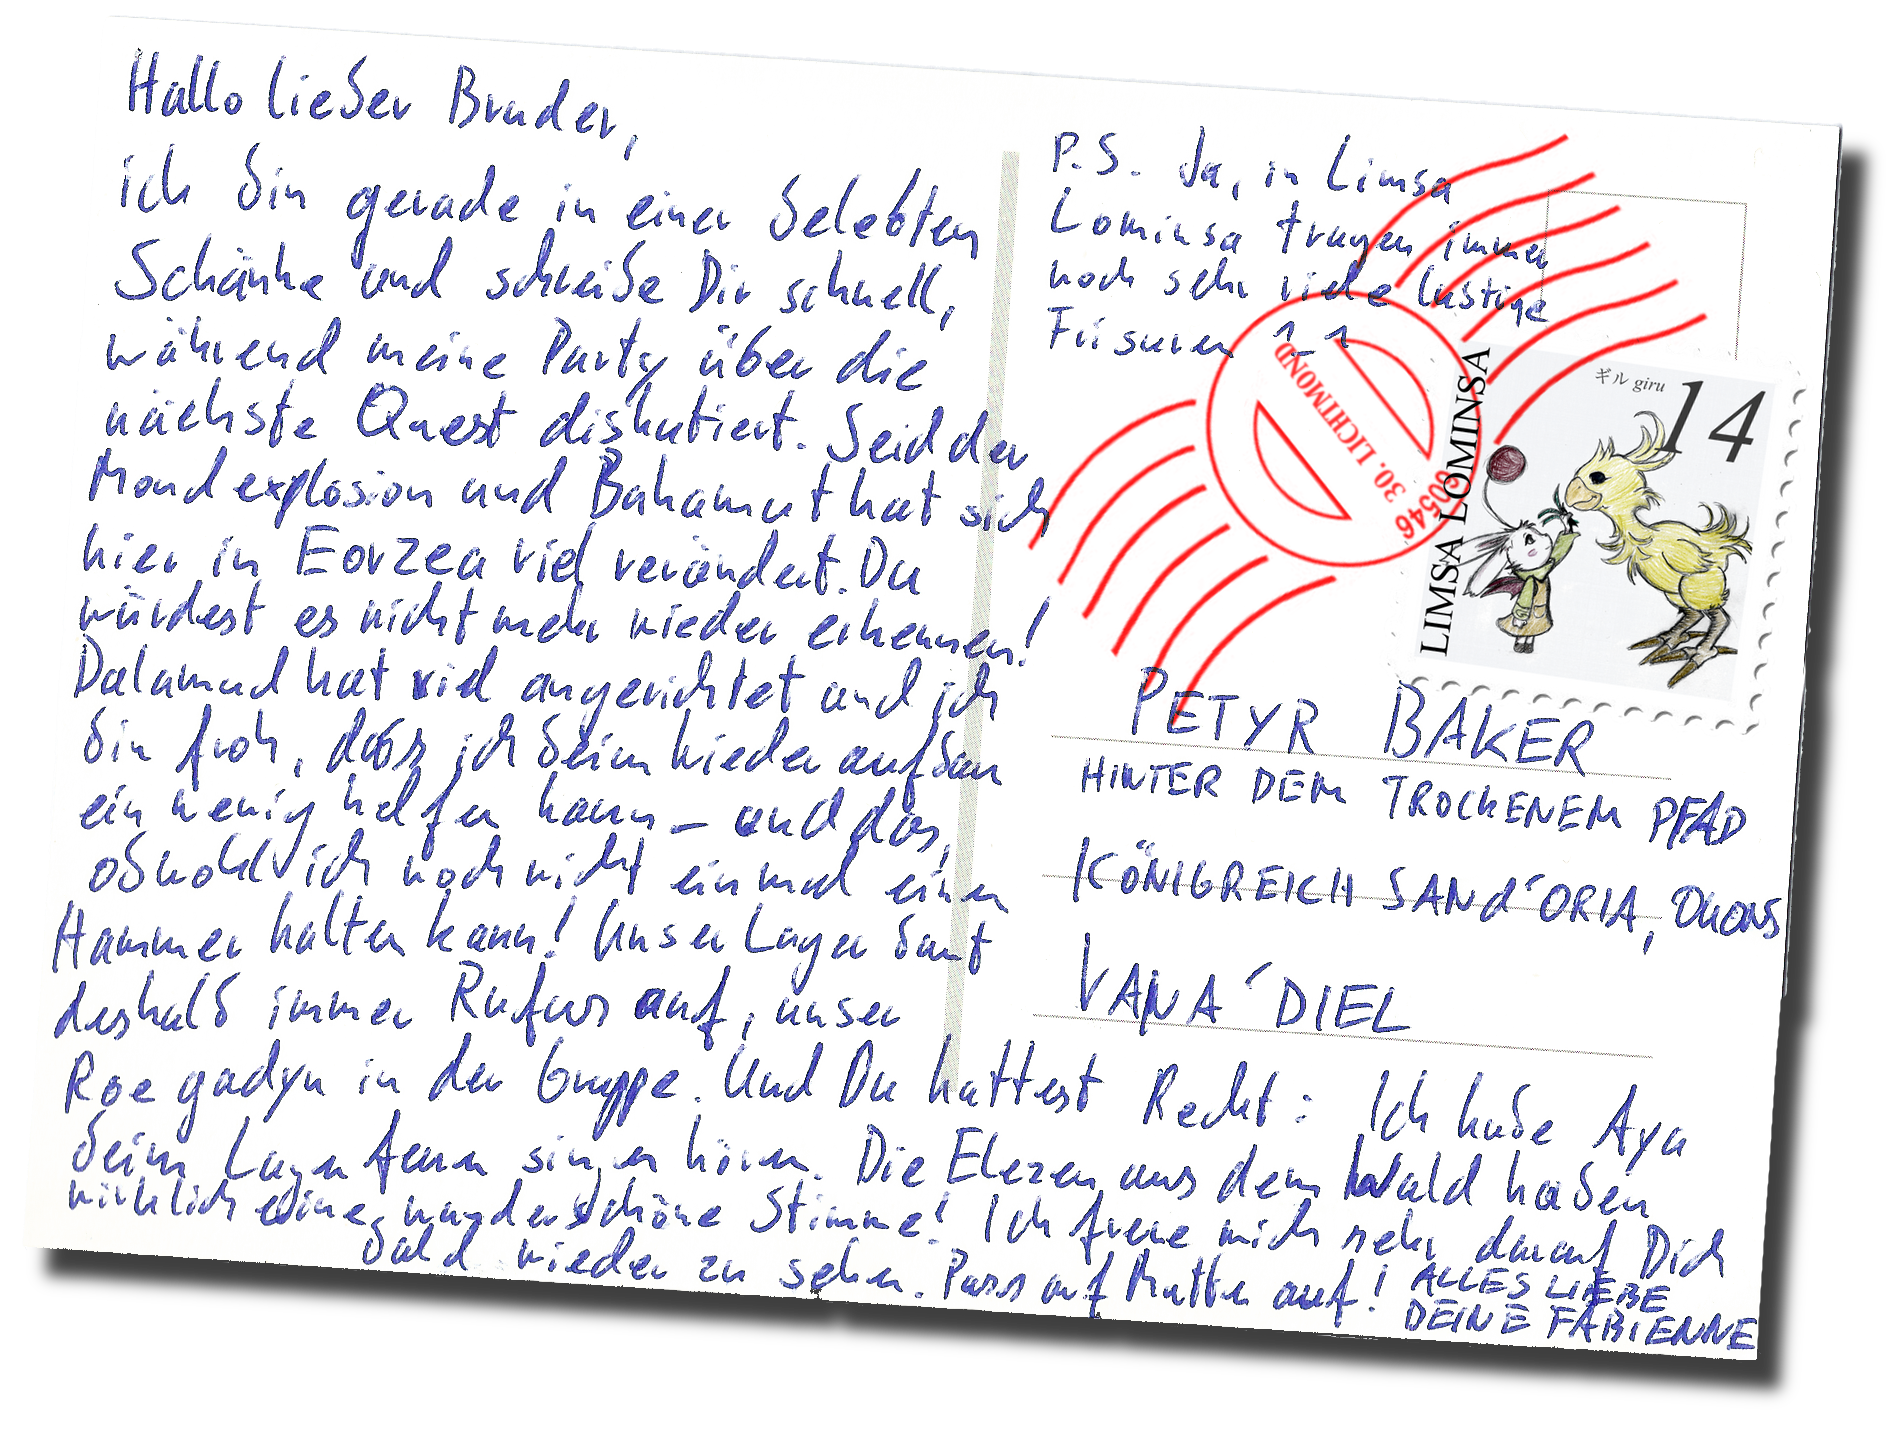 Hallo lieber Bruder,
ich bin gerade in einer belebten
Schänke und schreibe Dir schnell,
während meine Party über die
nächste Quest diskutiert. Seid der
Mondexplosion und Bahamut hat sich
hier in Eorzea viel verändert. Du
würdest es nicht mehr wieder erkennen!
Dalamud hat viel angerichtet und ich
bin froh, dass ich beim Wiederaufbau
ein wenig helfen kann – und das,
obwohl ich noch nicht einmal einen
Hammer halten kann! Unser Lager baut
deshalb immer Rufus auf, unser
Roegadyn in der Gruppe. Und Du hattest Recht: Ich habe Aya
beim Lagerfeuer singen hören. Die Elezen aus dem Wald haben
wirklich eine wunderschöne Stimme! Ich freue mich sehr darauf Dich
bald wieder zu sehen. Pass auf Mutter auf! ALLES LIEBE
DEINE FABIENNE
P.S. Ja, in Limsa
Lominsa tragen immer
noch sehr viele lustige
Frisuren ^_^
30. LICHTMOND
60546
LIMSA LOMINSA
ギル giru
14
PETYR BAKER
HINTER DEM TROCKENEM PFAD
KÖNIGREICH SAND´ORIA,
VANA´DIEL